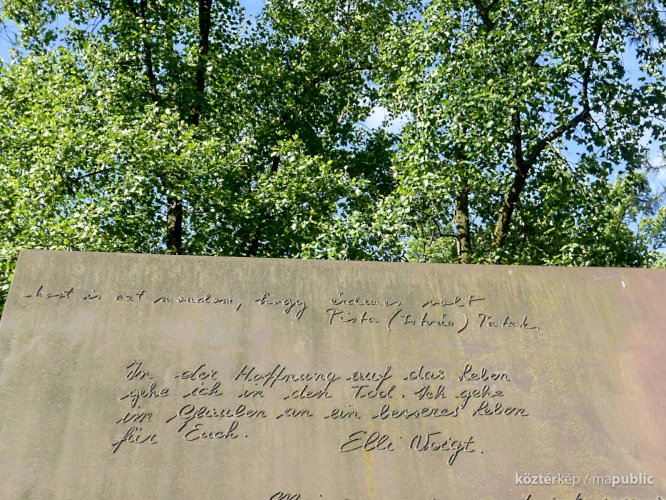 most is azt mondom, hogy érdemes volt
Pista (István) Patak.
In der Hoffnung auf das Leben
gehe ich in den Tod. Ich gehe
im Glauben an ein besseres Leben
für Euch. Elli Voigt.
köztérkép / mapublic